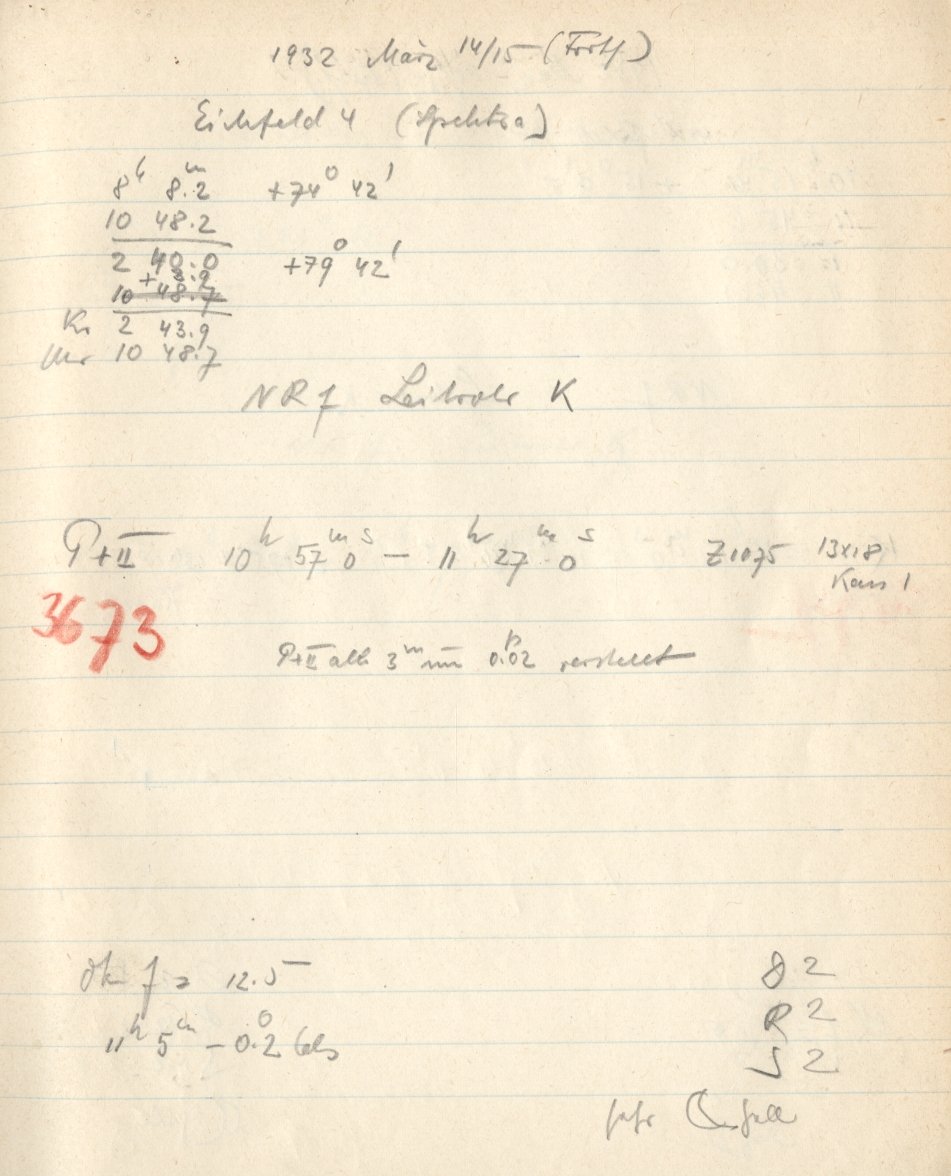 1932 März 14/15 (Forts.)
Eichfeld 4 (Spektra)
8h 8m.2 +74° 42'
10 48.2
2 40.0 +79° 42'
+3.9
10 48.7
Kr 2 43.9
Uhr 10 48.7
NR f Leitrohr K
P+II 10h 57m 0s — 11h 27m 0s Z1075 13x18,
Kass 1
3673
P+II alle 3m um 0p.02 verstellt
Ok f = 12.5
D 2
R 2
11h 5m - 0°.2 Cels
S 2
sehr